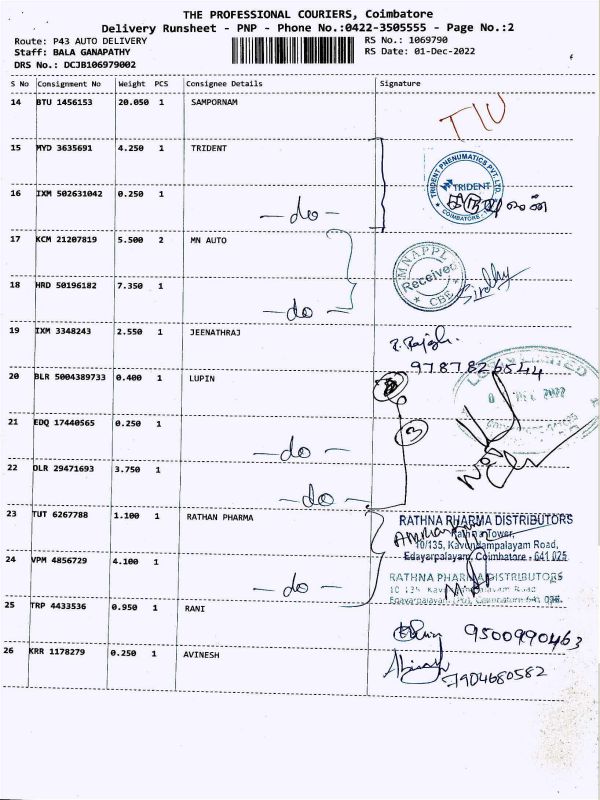 THE PROFESSIONAL COURIERS, Coimbatore
Delivery Runsheet - PNP - Phone No.:0422-3505555 - Page No.:2
Route: P43 AUTO DELIVERY
RS No.: 1069790
Staff: BALA GANAPATHY
RS Date: 01-Dec-2022
DRS No.: DCJB106979002
S No Consignment No Weight PCS Consignee Details Signature
14 BTU 1456153 20.050 1 SAMPORNAM
15 MYD 3635691 4.250 1 TRIDENT
TRIDENT PNEUMATICS PVT. LTD.
TRIDENT
COIMBATORE
16 IXM 502631042 0.250 1
- do -
17 KCM 21207819 5.500 2 MN AUTO
MNAPPL
Received
CBE
18 HRD 50196182 7.350 1
- do -
19 IXM 3348243 2.550 1 JEENATHRAJ
9787826544
20 BLR 5004389733 0.400 1 LUPIN
21 EDQ 17440565 0.250 1
3
- do -
22 DLR 29471693 3.750 1
- do -
23 TUT 6267788 1.100 1 RATHAN PHARMA
RATHNA PHARMA DISTRIBUTORS
Rathna Tower,
10/135, Kavundampalayam Road,
Edayarpalayam, Coimbatore - 641 025
24 VPM 4856729 4.100 1
- do -
RATHNA PHARMA DISTRIBUTORS
25 TRP 4433536 0.950 1 RANI
9500990463
26 KRR 1178279 0.250 1 AVINESH
7904680582